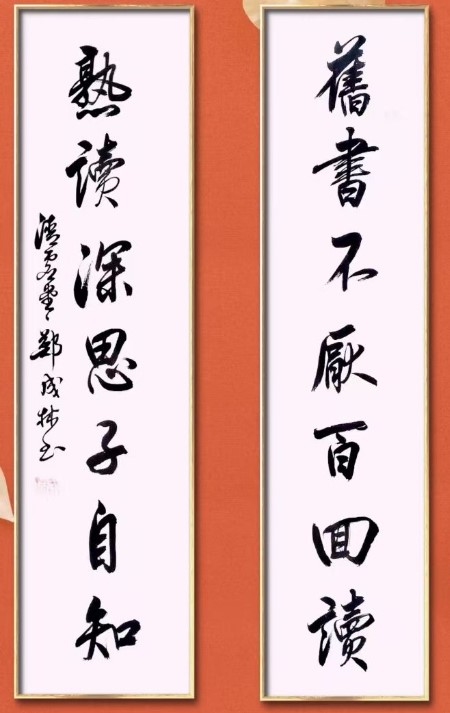 舊書不厭百回讀
熟讀深思子自知
鄭成林书